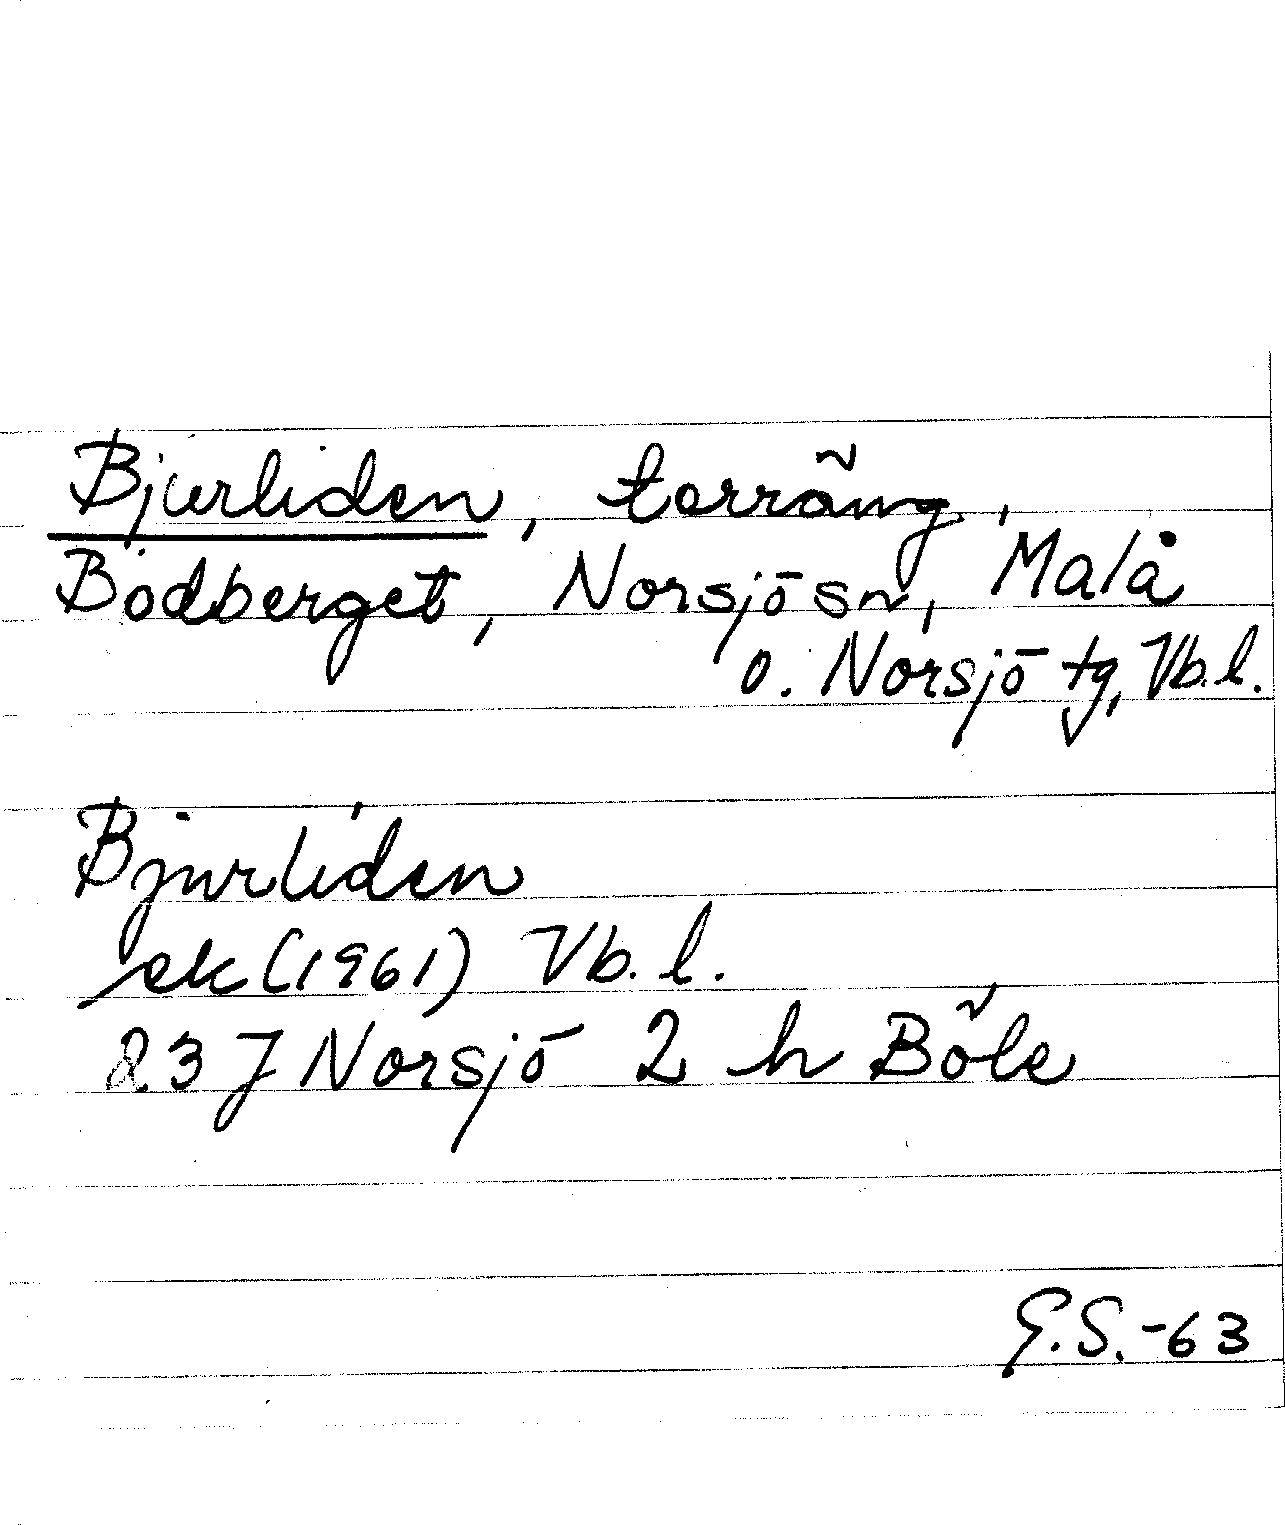 Bjurliden, terräng,
Bodberget, Norsjö sn, Malå
o. Norsjö tg, Vb.l.
Bjurliden
ek (1961) Vb.l.
23 J Norsjö 2 h Böle
G.S.-63